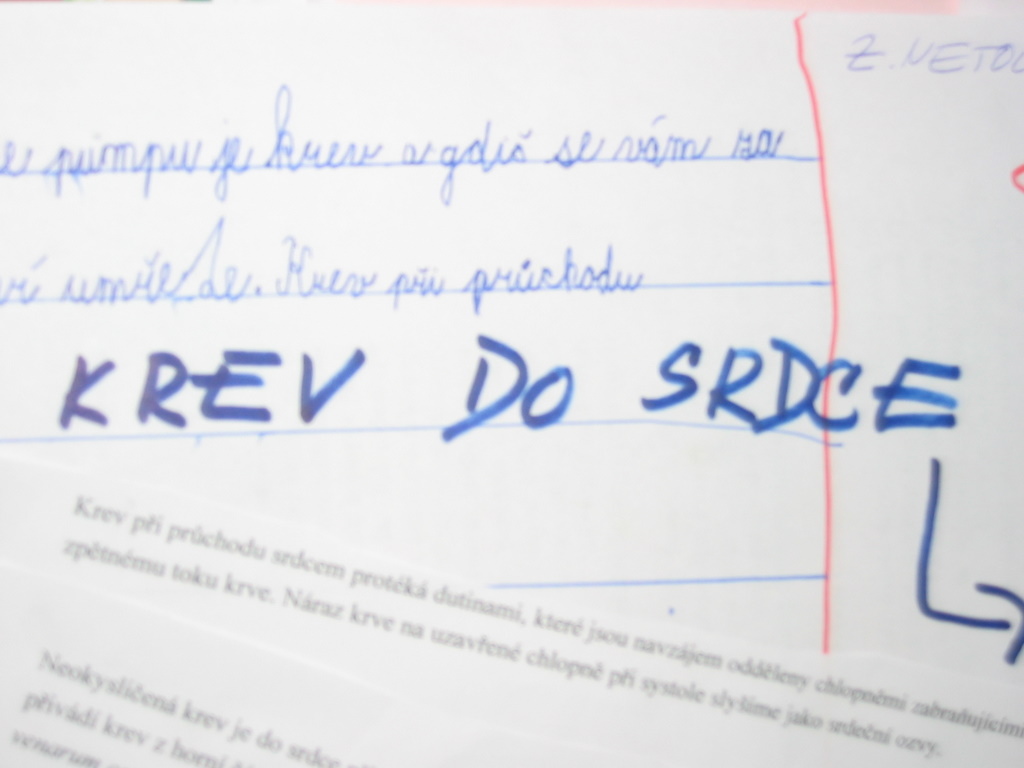 Z. NETOL
e pumpuje krev a gdiš se vám za
ví umřeJe. Krev při průchodu
KREV DO SRDCE
Krev při průchodu srdcem protéká dutinami, které jsou navzájem odděleny chlopněmi zabraňujícími
zpětnému toku krve. Náraz krve na uzavřené chlopně při systole slyšíme jako srdeční ozvy.
Neokysličená krev je do srdce
přivádí krev z horní
venarum